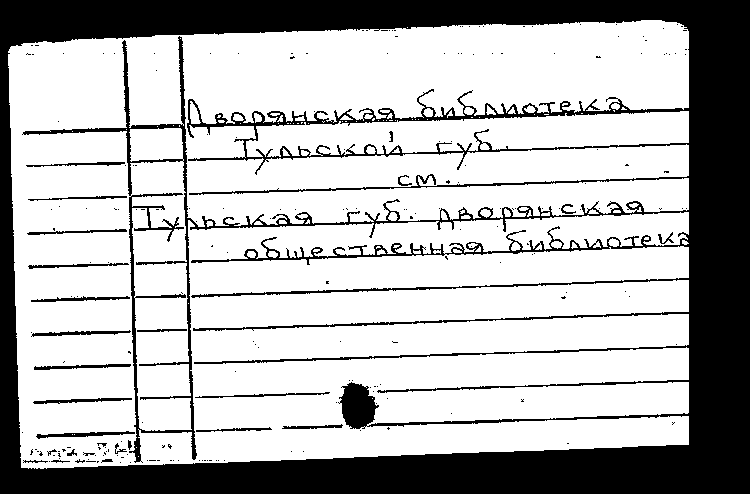 Дворянская библиотека
Тульской губ.
см.
Тульская губ. дворянская
общественная библиотека